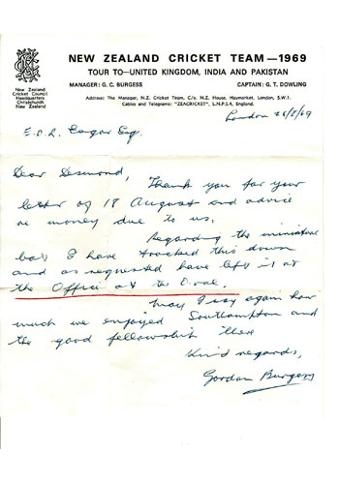 NEW ZEALAND CRICKET TEAM — 1969
TOUR TO—UNITED KINGDOM, INDIA AND PAKISTAN
MANAGER: G. C. BURGESS CAPTAIN: G. T. DOWLING
New Zealand
Cricket Council
Headquarters
Christchurch
New Zealand
Address: The Manager, N.Z. Cricket Team, C/o. N.Z. House, Haymarket, London, S.W.1.
Cables and Telegrams: "ZEACRICKET", L.N.P.S.4, ENGLAND.
London 26/8/69
Eagar Esq.
Dear Desmond,
Thank you for your
letter of 18 August and advice
re money due to us.
Regarding the miniature
bat I have tracked this down
and as requested have left it at
the Office at the Oval.
May I say again how
much we enjoyed Southampton and
the good fellowship there
Kind regards,
Gordon Burgess